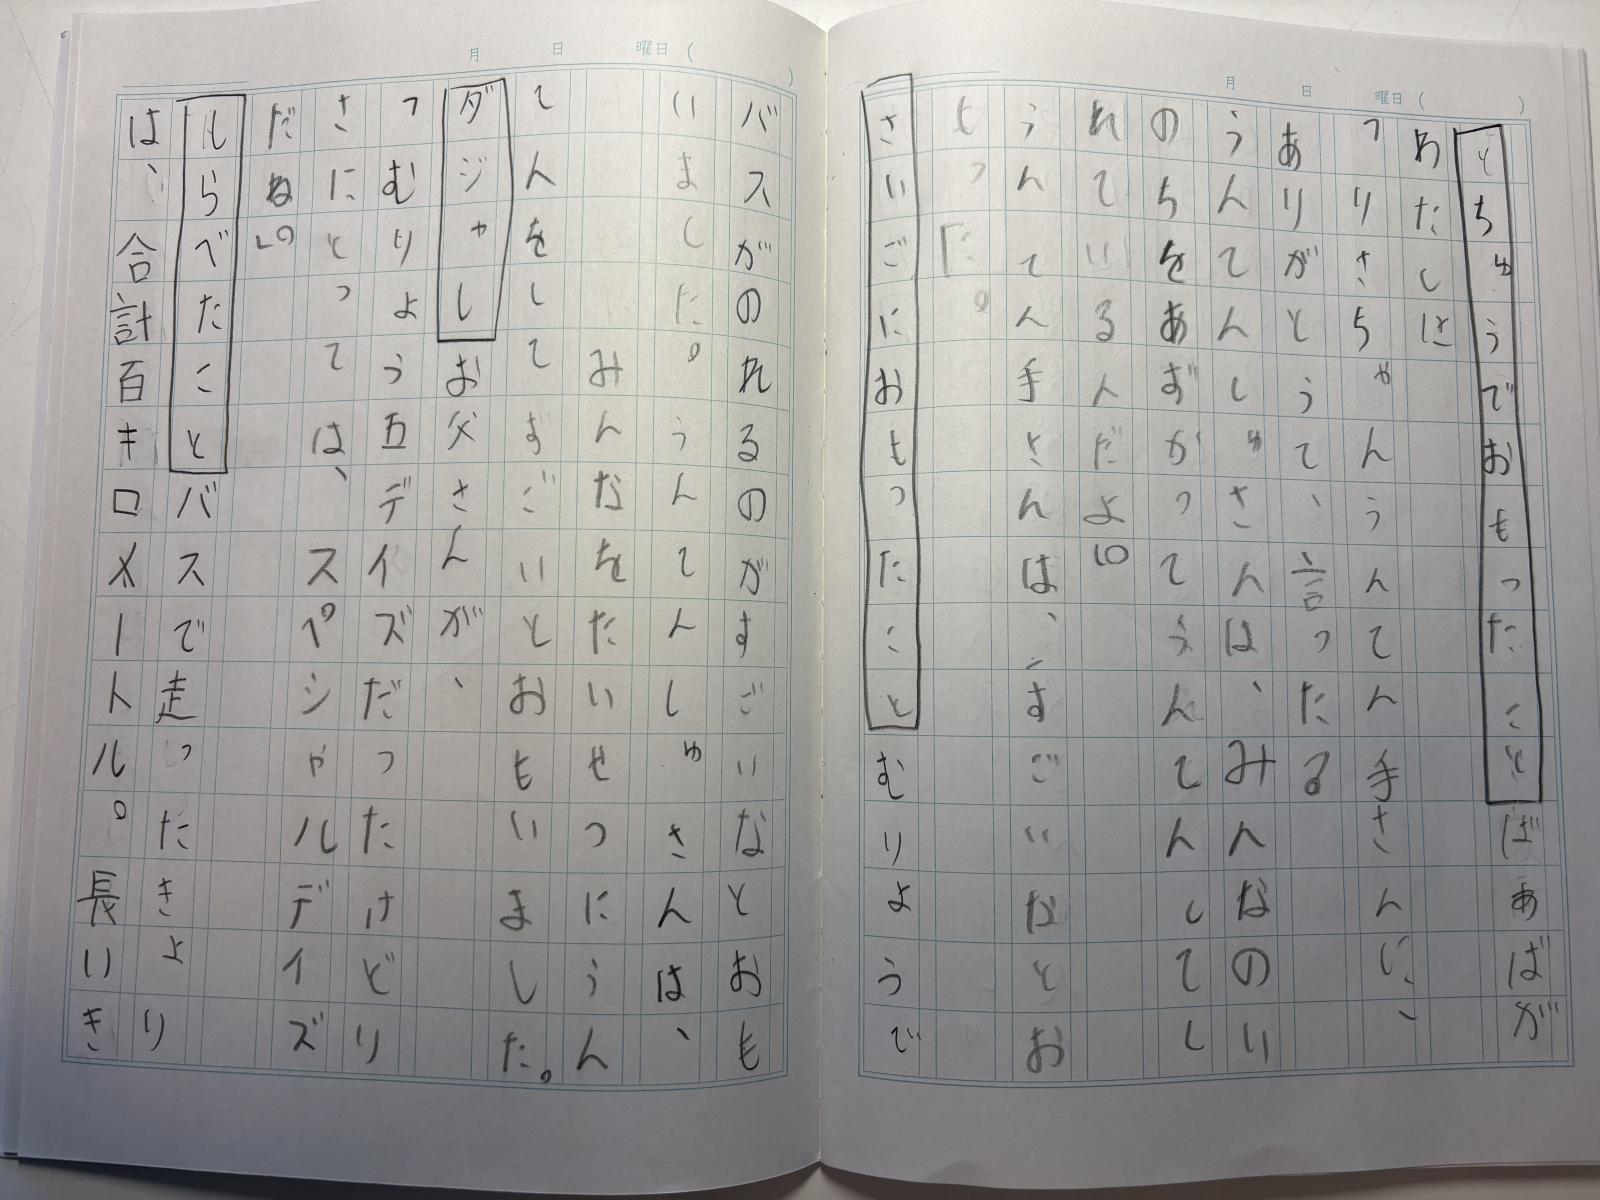 月 日 曜日( )
とちゅうでおもったことばあばが
わたしに
「りさちゃんうんてん手さんに、
ありがとうて、言ったる
うんてんしゅさんは、みんなのい
のちをあずかってうんてんしてし
れているんだよ」。
うんてん手さんは、、すごいなとお
もった。
さいごにおもったことむりようで
月 日 曜日( )
バスがのれるのがすごいなとおも
いました。うんてんしゅさんは、
みんなをたいせつにうん
てんをしてすごいとおもいました。
ダジャレお父さんが、
「むりよう五デイズだったけどり
さにとっては、スペシャルデイズ
だね。」
しらべたことバスで走ったきより
は、合計百キロメートル。長いき